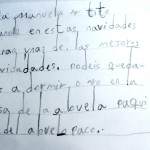 la manuela y tito
en estas navidades
unas de las mejores
navidades. podeis queda
a dormir, o no en la
sa de la abuela paqui
del abuelo paco.